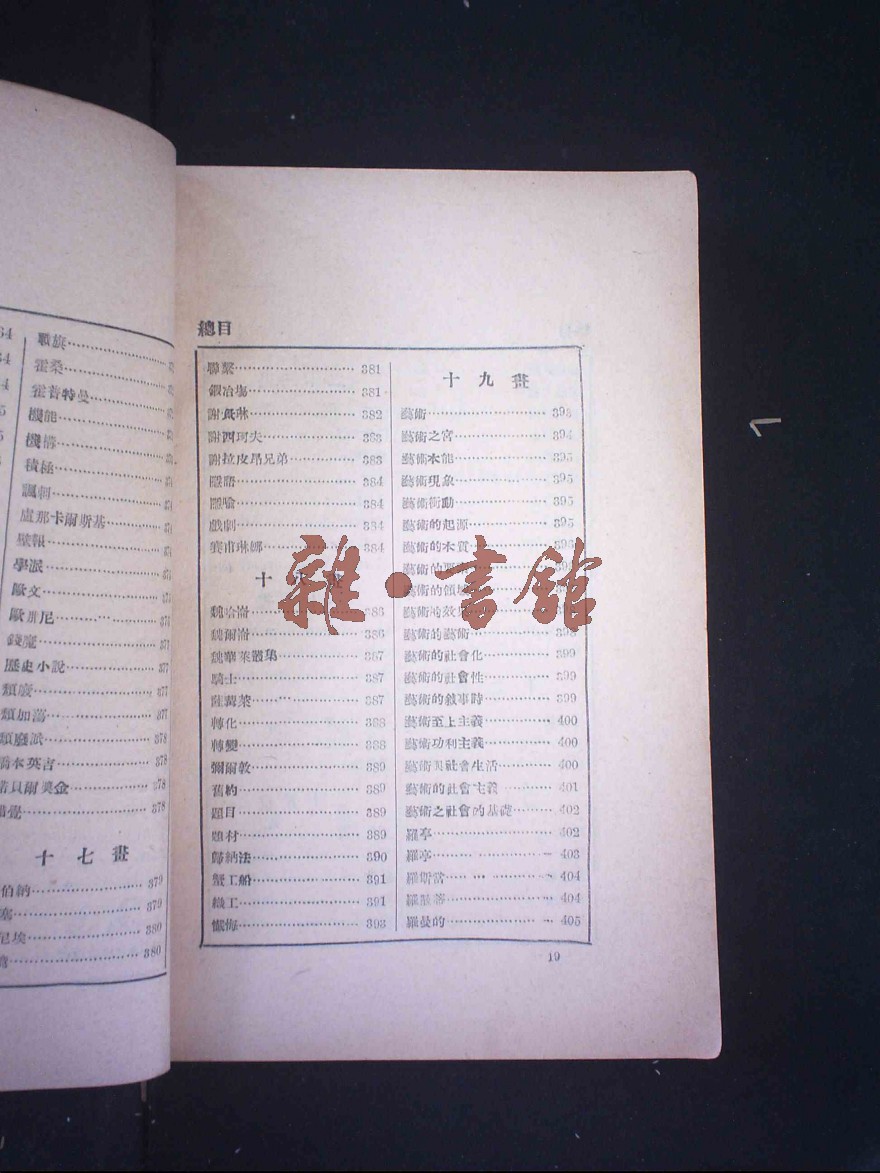 戰旗
霍桑
霍普特曼
機能
機構
積極
諷刺
盧那卡爾斯基
壁報
學派
歐文
錢魔
歷史小說 377
類廢 377
類加蕩 377
378
橋本英吉 378
諾貝爾獎金 378
378
十七畫
伯納 379
379
尼埃 380
380
總目
聯繫 381
鍛冶場 381
謝林 382
謝西珂夫 383
謝拉皮昂兄弟 383
隱語 384
隱喻 384
戲劇 384
賽甫琳娜 384
十八畫
魏哈崙 386
魏爾崙 386
魏華萊叢集 387
騎士 387
薩冀萊 387
轉化 388
轉變 388
彌爾敦 389
舊約 389
題目 389
題材 389
歸納法 390
蟹工船 391
織工 391
懺悔 393
十九畫
藝術 393
藝術之宮 394
藝術本能 395
藝術現象 395
藝術衝動 395
藝術的起源 395
藝術的本質 396
藝術的
藝術的領域
藝術的效果
藝術的藝術 398
藝術的社會化 399
藝術的社會性 399
藝術的敘事時 399
藝術至上主義 400
藝術功利主義 400
藝術與社會生活 400
藝術的社會主義 401
藝術之社會的基礎 402
羅亭 402
羅亭 403
羅斯當 404
羅瑟蒂 404
羅曼的 405
19
雜·書館